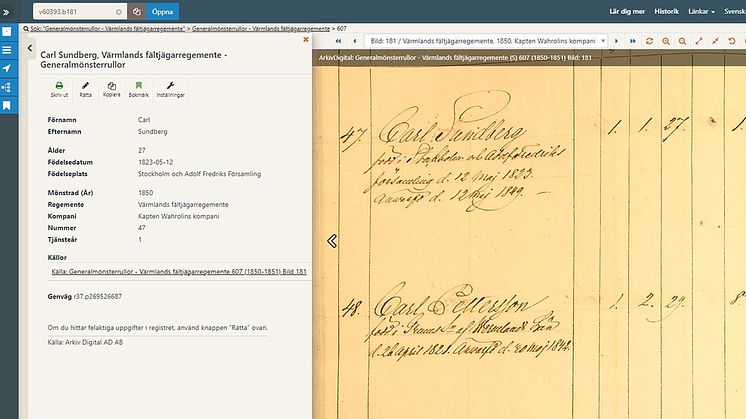 v60393.b181
Öppna
Lär dig mer
Historik
Länkar
Svensk
Sök: "Generalmönsterrullor - Värmlands fältjägarregemente" > Generalmönsterrullor - Värmlands fältjägarregemente > 607
Carl Sundberg, Värmlands fältjägarregemente -
Generalmönsterrullor
Skriv ut
Rätta
Kopiera
Bokmärk
Inställningar
Förnamn Carl
Efternamn Sundberg
Ålder 27
Födelsedatum 1823-05-12
Födelseplats Stockholm och Adolf Fredriks Församling
Mönstrad (År) 1850
Regemente Värmlands fältjägarregemente
Kompani Kapten Wahrolins kompani
Nummer 47
Tjänsteår 1
Källor
Källa: Generalmönsterrullor - Värmlands fältjägarregemente 607 (1850-1851) Bild 181
Genväg r37.p269526687
Om du hittar felaktiga uppgifter i registret, använd knappen "Rätta" ovan.
Källa: Arkiv Digital AD AB
Bild: 181 / Värmlands fältjägarregemente, 1850, Kapten Wahrolins kompani
ArkivDigital: Generalmönsterrullor - Värmlands fältjägarregemente (S) 607 (1850-1851) Bild: 181
47. Carl Sundberg 1. 1. 27. 1
född i Stockholm och Adolf Fredriks
församling d. 12 maj 1823.
Anvarfd d. 12 maj 1849.
48. Carl Pettersson 1. 2. 29. 8.
född i af Wermlands Län
d. 26 April 1821. Anvarfd d. 20 maj 1842.